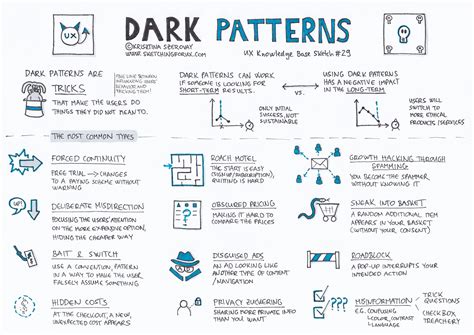 DARK PATTERNS
UX
©KRISZTINA SZEROVAY
WWW.SKETCHINGFORUX.COM
UX Knowledge Base Sketch #29
DARK PATTERNS ARE
TRICKS
THAT MAKE THE USERS DO
THINGS THEY DID NOT MEAN TO.
FINE LINE BETWEEN
INFLUENCING USER
BEHAVIOR AND
TRICKING THEM!
DARK PATTERNS CAN WORK
IF SOMEONE IS LOOKING FOR
SHORT-TERM RESULTS.
ONLY INITIAL
SUCCESS, NOT
SUSTAINABLE
VS.
USING DARK PATTERNS
HAS A NEGATIVE IMPACT
IN THE LONG-TERM
USERS WILL
SWITCH TO
MORE ETHICAL
PRODUCTS/SERVICES
THE MOST COMMON TYPES
FORCED CONTINUITY
FREE TRIAL → CHANGES
TO A PAYING SCHEME WITHOUT
WARNING
ROACH MOTEL
THE START IS EASY
(SIGNUP/SUBSCRIPTION),
QUITTING IS HARD
GROWTH HACKING THROUGH
SPAMMING
YOU BECOME THE SPAMMER
WITHOUT KNOWING IT
UP!
DELIBERATE MISDIRECTION
FOCUSING THE USERS' ATTENTION
ON THE MORE EXPENSIVE OPTION,
HIDING THE CHEAPER WAY
OBSCURED PRICING
MAKING IT HARD TO
COMPARE THE PRICES
SNEAK INTO BASKET
A RANDOM ADDITIONAL ITEM
APPEARS IN YOUR BASKET
(WITHOUT YOUR CONSENT)
BAIT & SWITCH
USE A CONVENTION, PATTERN
IN A WAY TO MAKE THE USER
FALSELY ASSUME SOMETHING
DISGUISED ADS
AN AD LOOKING LIKE
ANOTHER TYPE OF
CONTENT / NAVIGATION
AD
ROADBLOCK
A POP-UP INTERRUPTS YOUR
INTENDED ACTION
HIDDEN COSTS
AT THE CHECKOUT, A NEW,
UNEXPECTED COST APPEARS
PRIVACY ZUCKERING
SHARING MORE PRIVATE INFO
THAN YOU WANT
???
MISINFORMATION
TRICK
QUESTIONS
CHECK BOX
TREACHERY